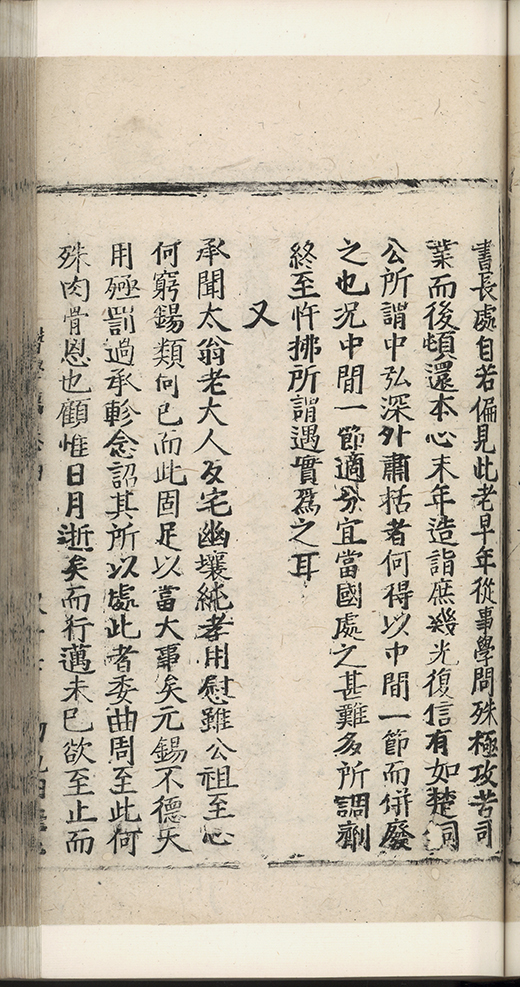 書長處自若偏見此老早年從事學問殊極攻苦司
業而後頓還本心末年造詣庶幾光復信有如楚侗
公所謂中弘深外肅括者何得以中間一節而併廢
之也況中間一節適分宜當國處之甚難多所調劑
終至忤拂所謂遇實爲之耳
又
承聞太翁老大人反宅幽壤純孝用慰雖公祖至心
何窮錫類何已而此固足以當大事矣元錫不德天
用殛罰過承軫念詔其所以處此者委曲周至此何
殊肉骨恩也顧惟日月逝矣而行邁未已欲至止而